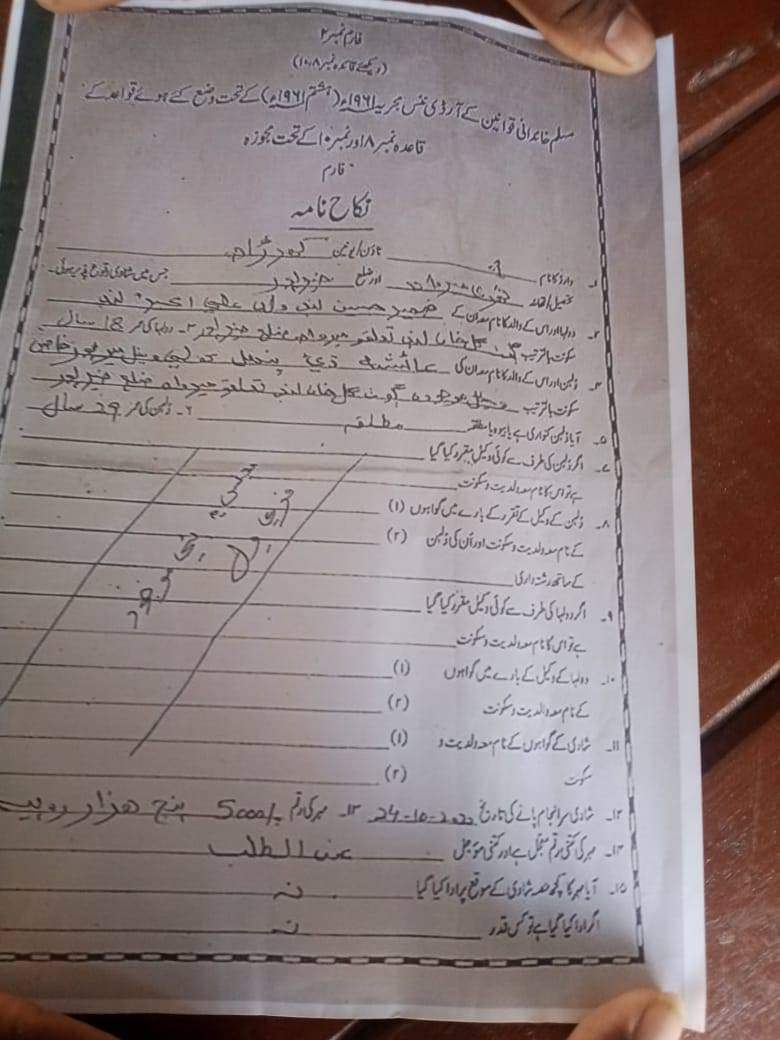 فارم نمبر ۲
(دیکھئے قاعدہ نمبر ۸، ۱۰)
مسلم خاندانی قوانین کے آرڈی ننس مجریہ ۱۹۶۱ء (ہشتم ۱۹۶۱ء) کے تحت وضع کئے ہوئے قواعد کے
قاعدہ نمبر ۸ اور نمبر ۱۰ کے تحت مجوزہ
فارم
نکاح نامہ
۱۔ وارڈ کا نام ٹاؤن/یونین
تحصیل/تھانہ اور ضلع خیرپور جس میں شادی وقوع پذیر ہوئی۔
۲۔ دولہا اور اس کے والد کا نام معہ ان کے ضمیر حسین ولد علی اکبر
سکونت بالترتیب گل خان تعلقو میرواہ ضلع خیرپور ۳۔ دولہا کی عمر 18 سال
۴۔ دلہن اور اس کے والد کا نام معہ ان کی عائشہ ڌي
سکونت بالترتیب گوٺ گل خان تعلقو میرواہ ضلع خیرپور
۵۔ آیا دلہن کنواری ہے یا بیوہ یا مطلقہ مطلقہ ۶۔ دلہن کی عمر 29 سال
۷۔ اگر دلہن کی طرف سے کوئی وکیل مقرر کیا گیا
ہے تو اس کا نام معہ ولدیت و سکونت
۸۔ دلہن کے وکیل کے تقرر کے بارے میں گواہوں (۱)
کے نام معہ ولدیت و سکونت اور ان کی دلہن (۲)
کے ساتھ رشتہ داری
۹۔ اگر دولہا کی طرف سے کوئی وکیل مقرر کیا گیا
ہے تو اس کا نام معہ ولدیت و سکونت
۱۰۔ دولہا کے وکیل کے بارے میں گواہوں (۱)
کے نام معہ ولدیت و سکونت (۲)
۱۱۔ شادی کے گواہوں کے نام معہ ولدیت و (۱)
سکونت (۲)
۱۲۔ شادی سرانجام پانے کی تاریخ 24-10-2022 ۱۳۔ مہر کی رقم 5000/- پنج ھزار روپیہ
۱۴۔ مہر کی کتنی رقم معجل ہے اور کتنی مؤجل عندالطلب
۱۵۔ آیا مہر کا کچھ حصہ شادی کے موقع پر ادا کیا گیا نہ
اگر ادا کیا گیا ہے تو کس قدر نہ